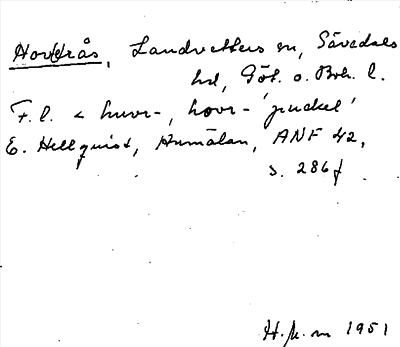 Hovrås, Landvetters sn, Sävedals
hd, Göt. o. Boh. l.
F.l. < huvr-, hovr- 'puckel'
E. Hellquist, Anmälan, ANF 42,
s. 286f.
1951